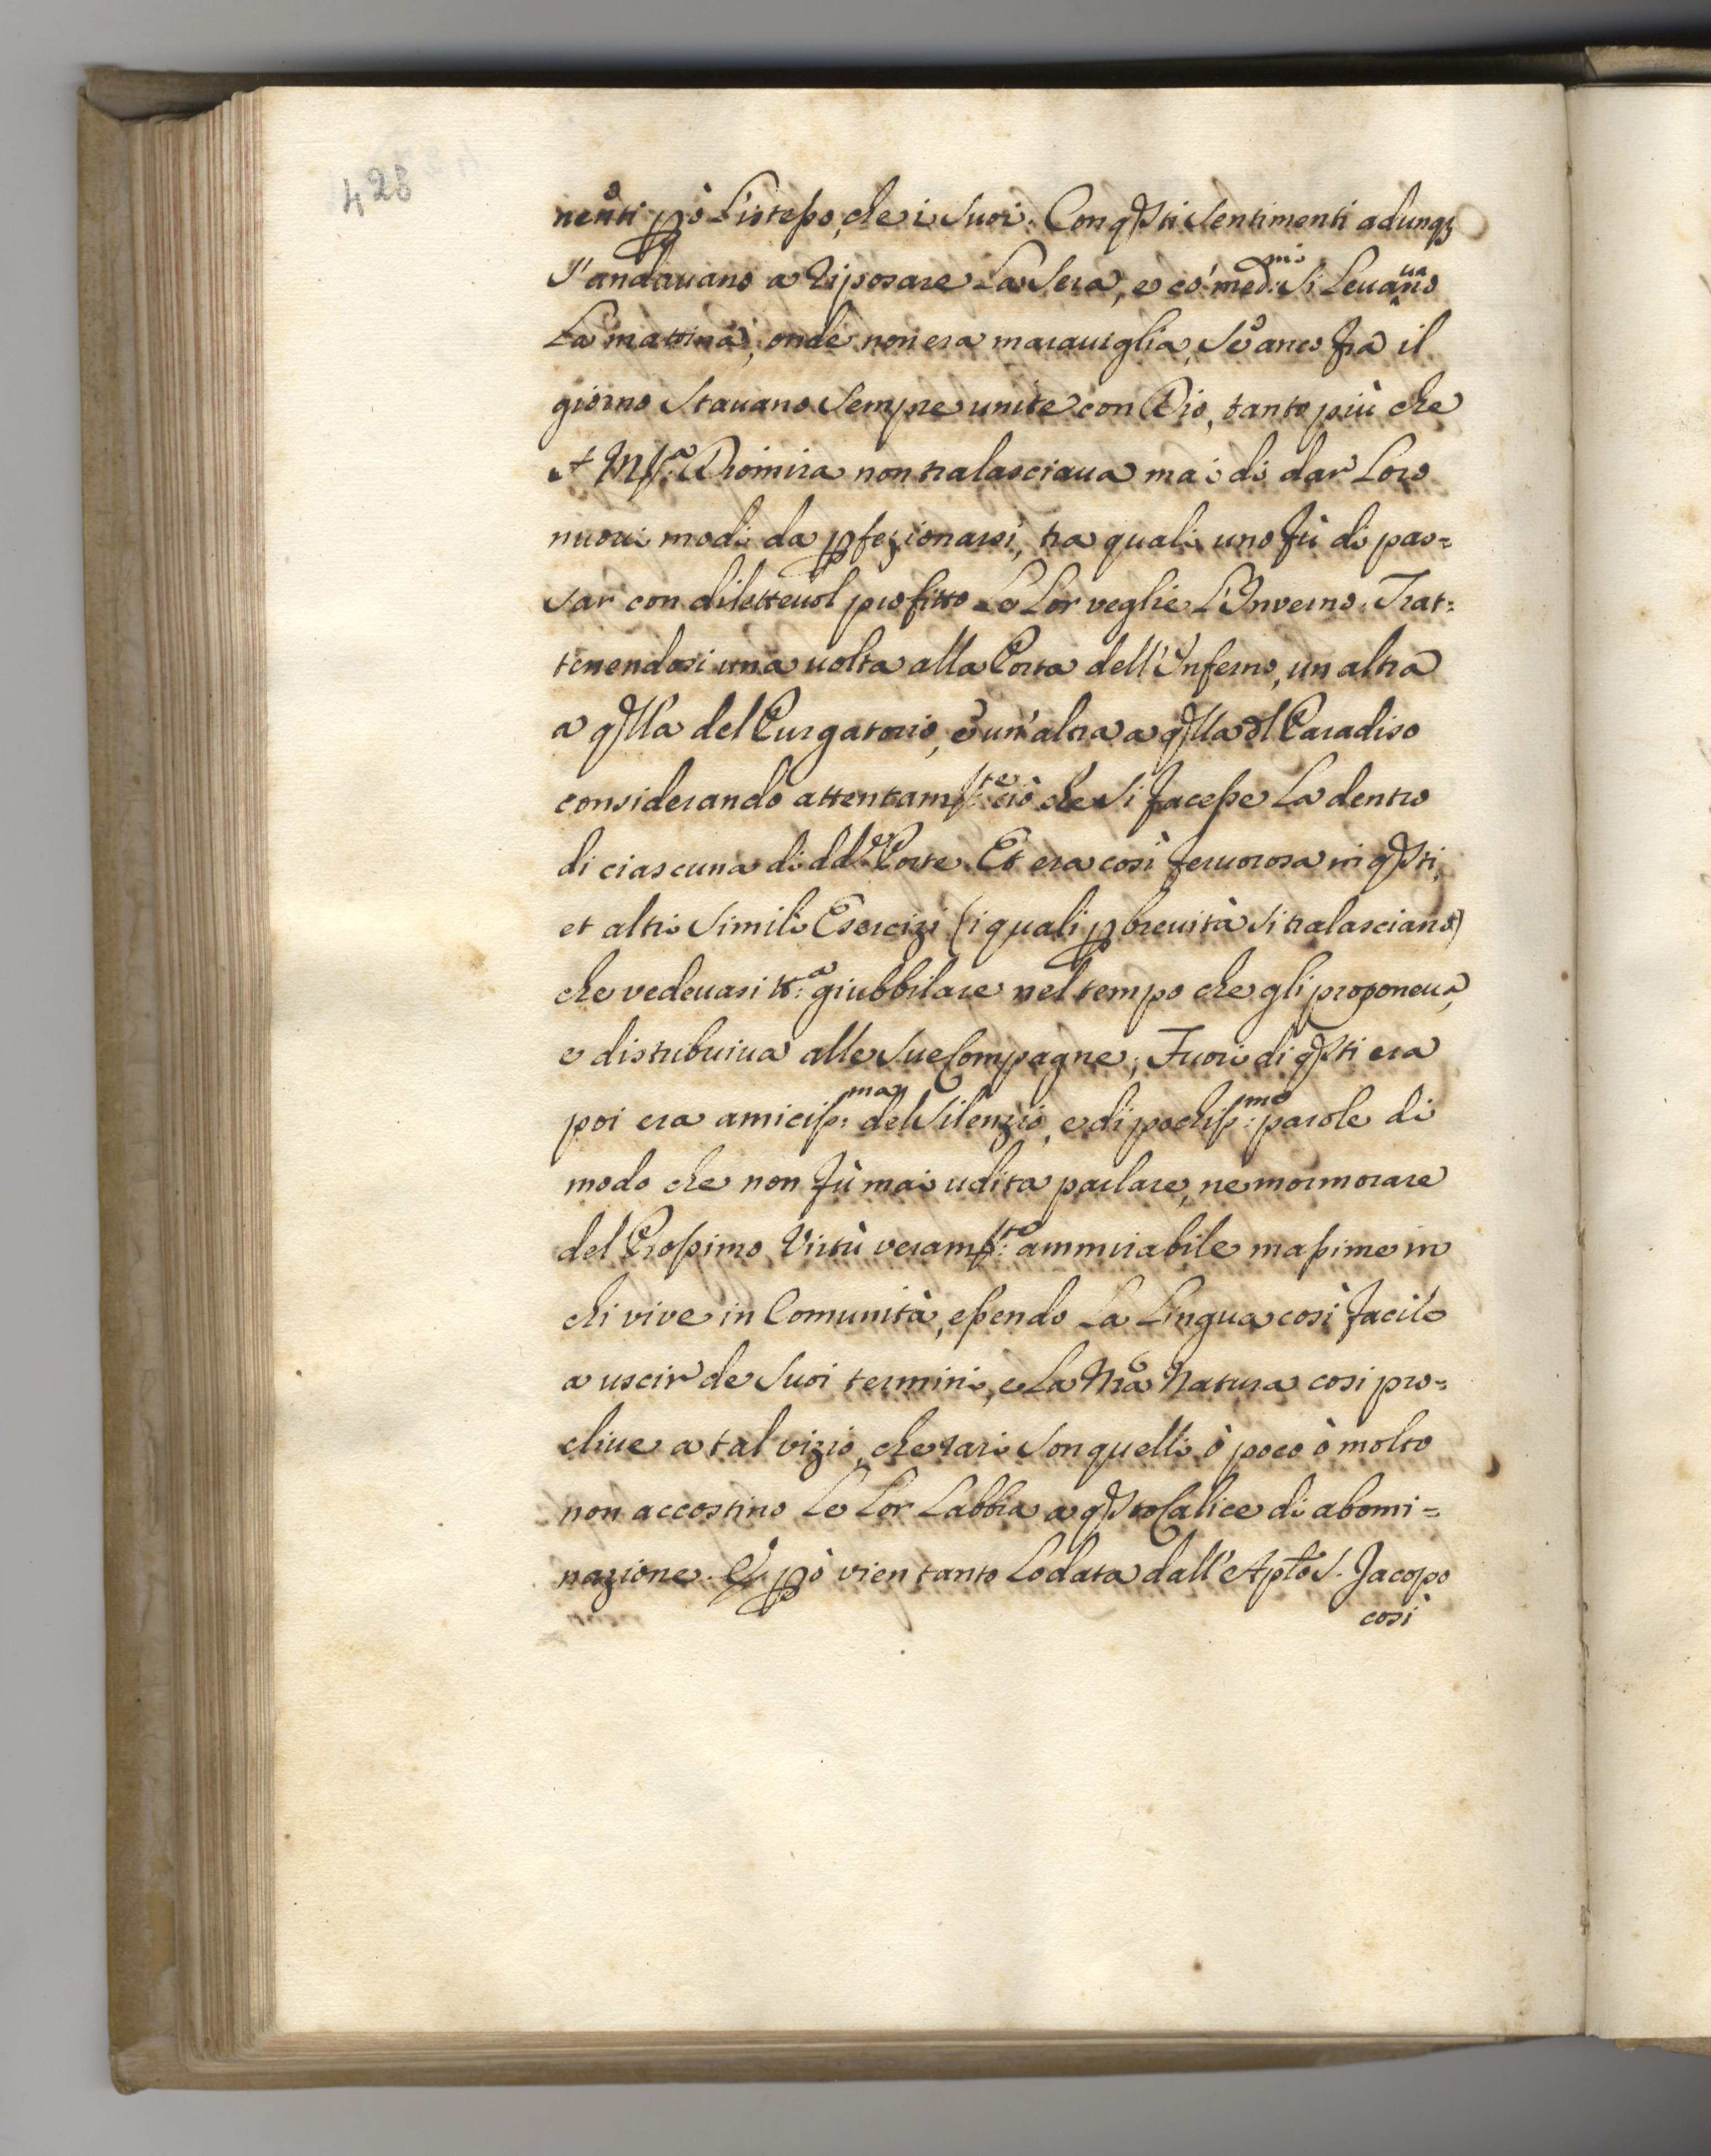 428
nenti però l'istesso, che i suoi. Con qsti sentimenti adunqz
s'andauano a riposare la sera, e co' med.mi si leuauano
la mattina, onde non era marauiglia, se anco fra il
giorno stauano sempre unite con Dio, tanto più che
Diomira non tralasciaua mai di dar loro
nuoui modi da pfezionarsi, tra quali uno fù di pas=
sar con diletteuol profitto le lor veglie l'Inverno. Trat=
tenendosi una uolta alla Porta dell'Inferno, un altra
a qlla del Purgatorio, e un'altra a qlla dl Paradiso
considerando attentamte ciò che si facesse la dentro
di ciascuna di dd.e Porte. Et era così feruorosa in qsti,
et altri simili Esercizi (i quali p breuità si tralasciano)
che vedeuasi tt.a giubbilare nel tempo che gli proponeua,
e distribuiua alle sue Compagne; Fuori di qsti era
poi era amiciss:ma del silenzio, e di pochiss:me parole di
modo che non fù mai udita parlare, ne mormorare
del Prossimo Virtù veramte: ammirabile massime in
chi vive in Comunità, essendo la lingua così facile
a uscir de suoi termini, e la Nrã Natura cosi pro=
cliue a tal vizio, che rari son quelli ò poco ò molto
non accostino le lor labbra a qsto Calice di abomi=
nazione. E pò vien tanto lodata dall'Aplõ S. Jacopo
così